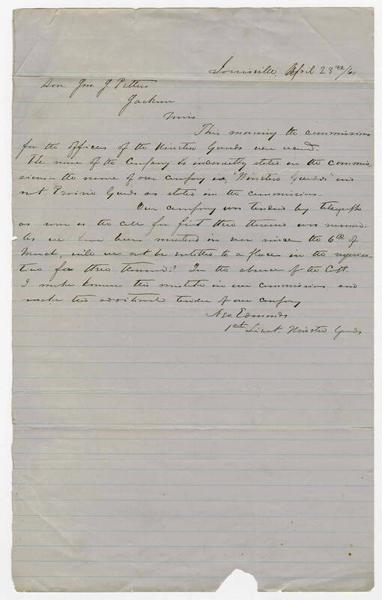 Louisville April 23rd /61
Hon Jno J Pettus
Jackson
Miss
This morning the commissions
for the officers of the Winston Guards were recd.
The name of the Company is incorrectly stated in the commis
sions the name of our company is "Winston Guards" and
not Prairie Guards as stated in the commissions.
Our company was tendered by telegraph
as soon as the call for first three thousand was
As we have been mustered in ever since the 6th of
March, will we not be entitled to a place in the requisi
tion for three thousand? In the absence of the Capt.
I make known the mistake in our commissions and
make the additional tender of our company
Edmonds
1st Lieut Winston Guards